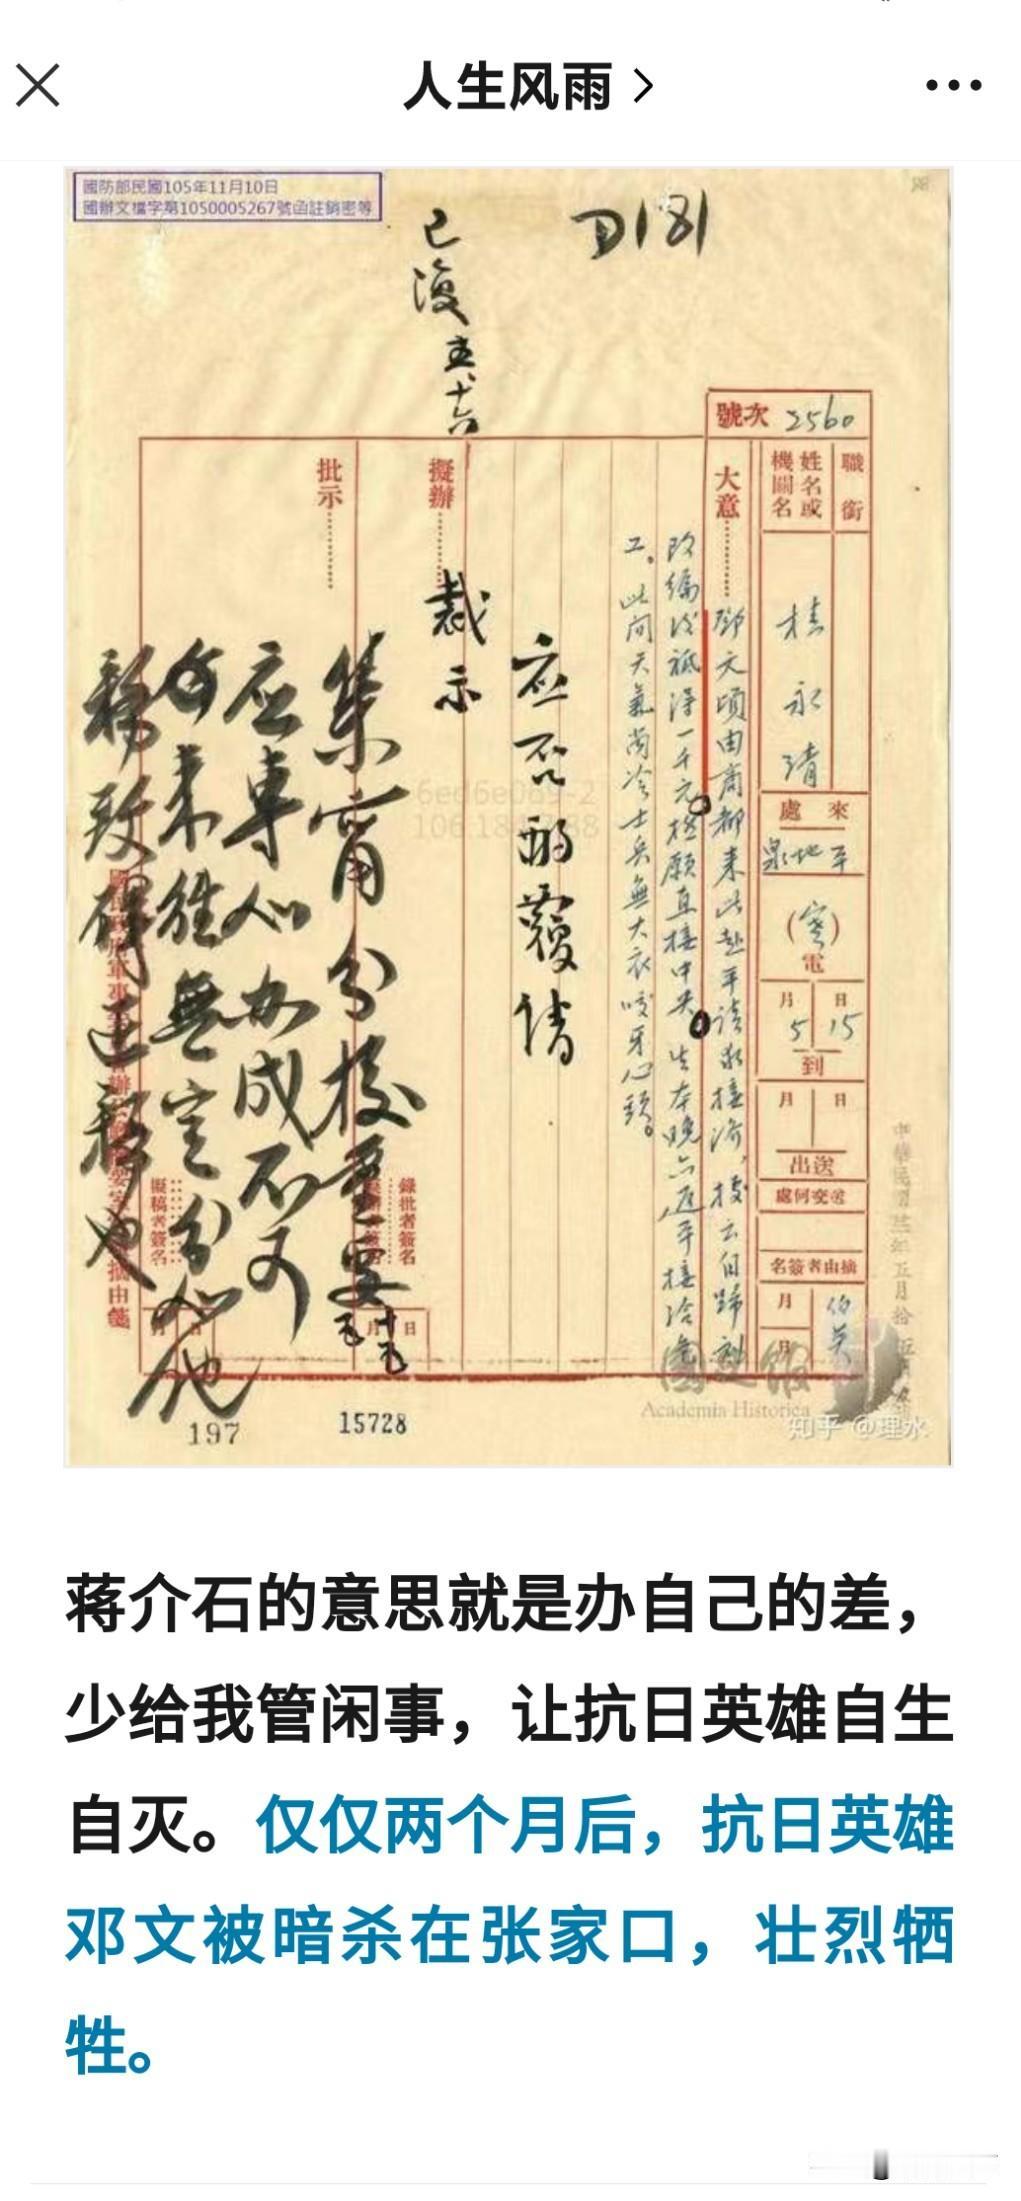 人生风雨
國防部民國105年11月10日
國辦文檔字第1050005267號函註銷密等
D181
已復 五、十六
號次 2560
職銜
姓名或機關名
桂永清
來處
平地泉
(寒)電
5月15日到
月日
送出
送交何處
摘由者簽名
伯英
月日
大意
鄧文頃由商都來此赴平請求接濟,據云自歸劉
改編後祗得一千元極願直接中央 生本晚六返平接洽
工。此間天氣尚冷士兵無大衣咬牙心頭。
應否酌覆請
擬辦
裁示
批示
集甯分校重要
应專心办成不可
再來往無定分心他
務致碍正務也
十五
錄批者簽名
擬稿者簽名
月日
月日
摘由箋
6ed6e069-2
197
15728
Academia Historica
知乎 @理水
蒋介石的意思就是办自己的差，
少给我管闲事，让抗日英雄自生
自灭。仅仅两个月后，抗日英雄
邓文被暗杀在张家口，壮烈牺
牲。